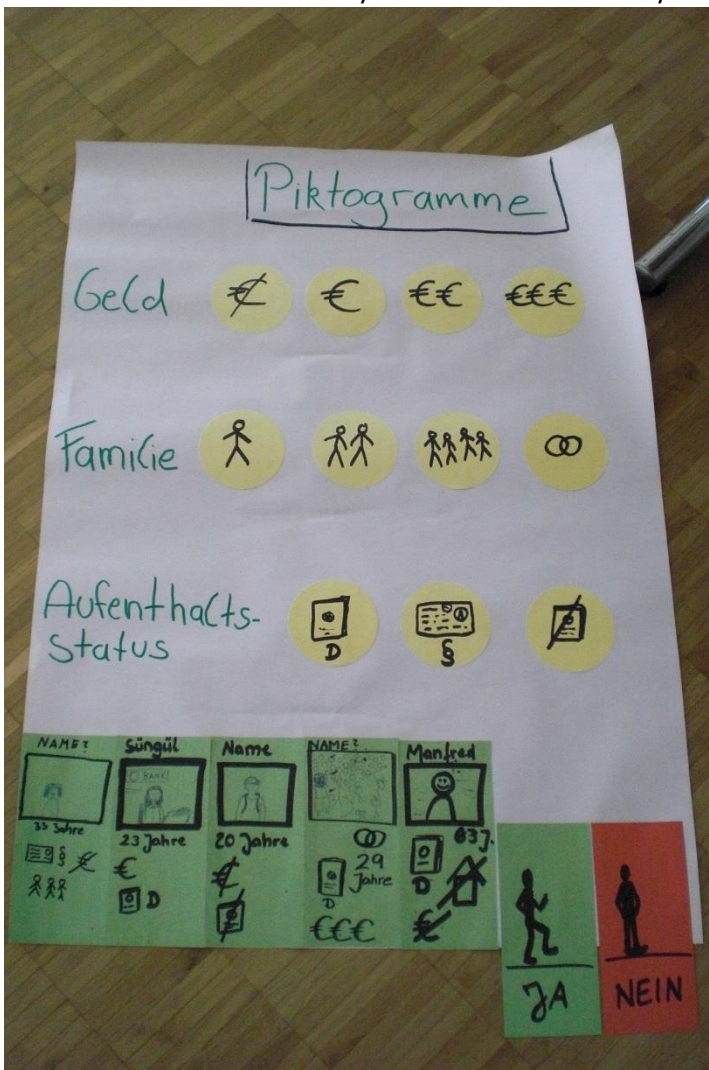 Piktogramme
Geld € € €€ €€€
Familie
Aufenthalts-
status
D § 
NAME?
33 Jahre
§ €
Süngül
BANK!
23 Jahre
€
D
Name
20 Jahre
€
NAME?
29
Jahre
D
€€€
Manfred
63 J.
D
€
JA
NEIN